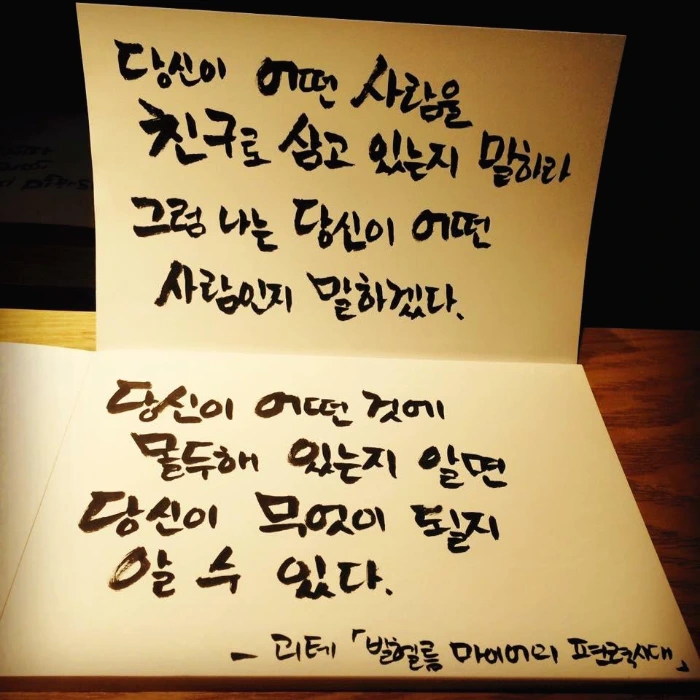 당신이 어떤 사람을
친구로 삼고 있는지 말하라
그럼 나는 당신이 어떤
사람인지 말하겠다.
당신이 어떤 것에
몰두해 있는지 알면
당신이 무엇이 될지
알 수 있다.
- 괴테 「빌헬름 마이어의 편력시대」